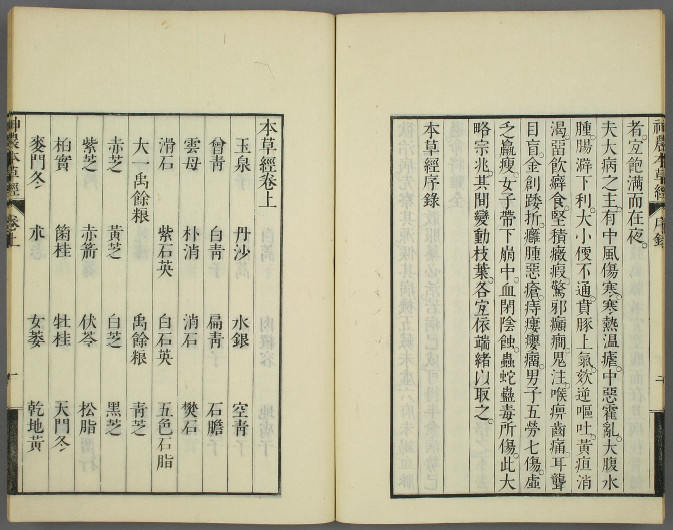 者。宜飽滿而在夜。
夫大病之主。有中風傷寒。寒熱温瘧。中惡霍亂。大腹水
腫。腸澼下利。大小便不通。賁豚上氣。欬逆嘔吐。黃疸消
渴。留飲癖食。堅積癥瘕。驚邪癲癇。鬼注。喉痹齒痛。耳聾
目盲。金創踒折。癰腫惡瘡。痔瘻癭瘤。男子五勞七傷。虛
乏羸瘦。女子帶下崩中。血閉陰蝕。蟲蛇蠱毒所傷。此大
略宗兆。其間變動枝葉。各宜依端緒以取之。
本草經序錄
神農本草經 序錄
本草經卷上
玉泉 丹沙 水銀 空青
曾青 白青 扁青 石膽
雲母 朴消 消石 樊石
滑石 紫石英 白石英 五色石脂
大一禹餘粮 禹餘粮 青芝
赤芝 黃芝 白芝 黑芝
紫芝 赤箭 伏苓 松脂
柏實 箘桂 牡桂 天門冬
麥門冬 朮 女萎 乾地黃
神農本草經 卷上 一